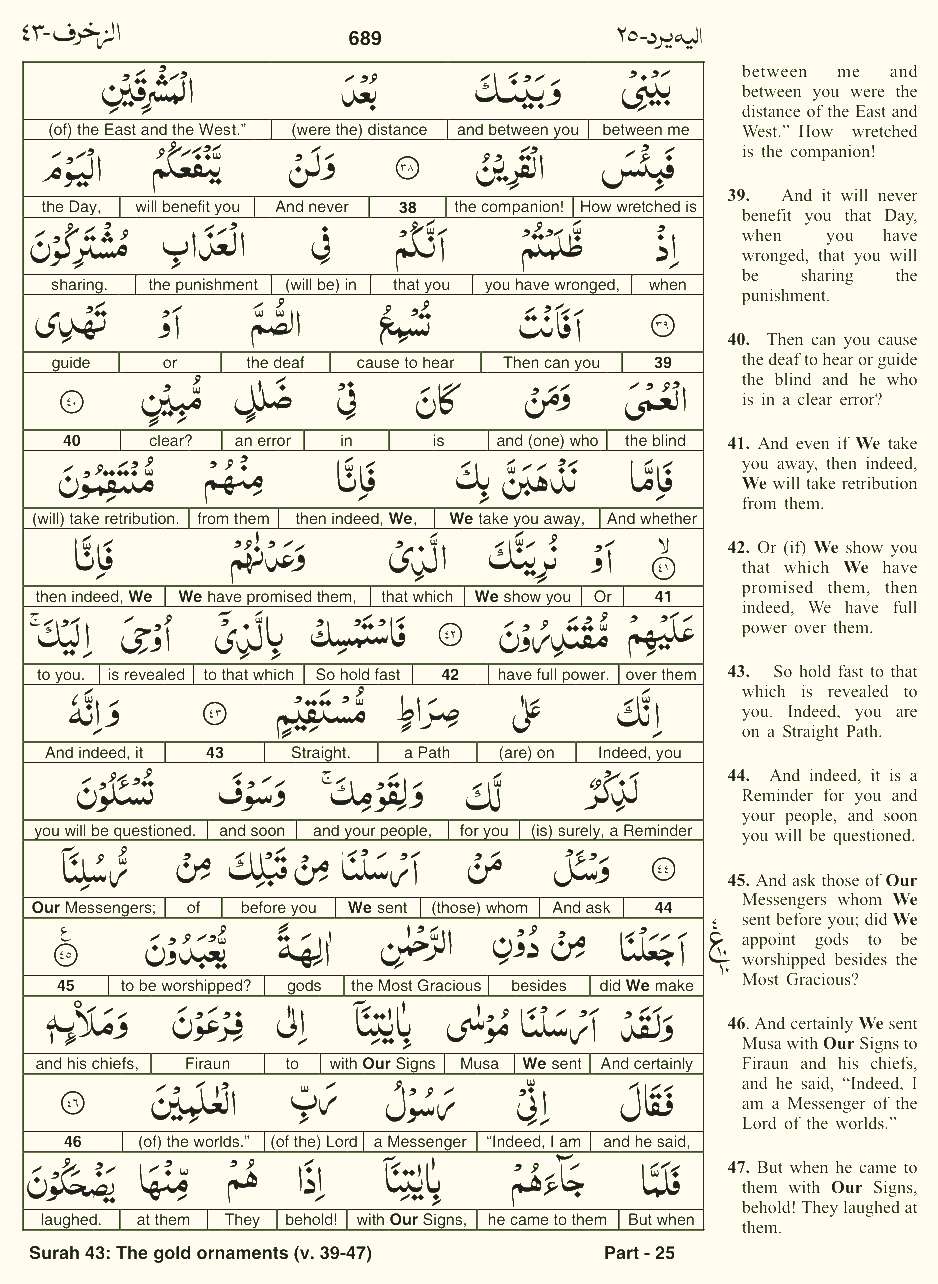 الزخرف-٤٣ 689 اليه يرد-٢٥
بَيْنِيْ وَبَيْنَكَ بُعْدَ الْمَشْرِقَيْنِ
(of) the East and the West.” (were the) distance and between you between me
فَبِئْسَ الْقَرِيْنُ ٣٨ وَلَنْ يَّنْفَعَكُمُ الْيَوْمَ
the Day, will benefit you And never 38 the companion! How wretched is
اِذْ ظَّلَمْتُمْ اَنَّكُمْ فِي الْعَذَابِ مُشْتَرِكُوْنَ
sharing. the punishment (will be) in that you you have wronged, when
٣٩ اَفَاَنْتَ تُسْمِعُ الصُّمَّ اَوْ تَهْدِى
guide or the deaf cause to hear Then can you 39
الْعُمْىَ وَمَنْ كَانَ فِيْ ضَلٰلٍ مُّبِيْنٍ ٤٠
40 clear? an error in is and (one) who the blind
فَاِمَّا نَذْهَبَنَّ بِكَ فَاِنَّا مِنْهُمْ مُّنْتَقِمُوْنَ
(will) take retribution. from them then indeed, We, We take you away, And whether
لا ٤١ اَوْ نُرِيَنَّكَ الَّذِيْ وَعَدْنٰهُمْ فَاِنَّا
then indeed, We We have promised them, that which We show you Or 41
عَلَيْهِمْ مُّقْتَدِرُوْنَ ٤٢ فَاسْتَمْسِكْ بِالَّذِيْٓ اُوْحِيَ اِلَيْكَ ۚ
to you. is revealed to that which So hold fast 42 have full power. over them
اِنَّكَ عَلٰى صِرَاطٍ مُّسْتَقِيْمٍ ٤٣ وَاِنَّهٗ
And indeed, it 43 Straight. a Path (are) on Indeed, you
لَذِكْرٌ لَّكَ وَلِقَوْمِكَ ۚ وَسَوْفَ تُسْـَٔلُوْنَ
you will be questioned. and soon and your people, for you (is) surely, a Reminder
٤٤ وَسْـَٔلْ مَنْ اَرْسَلْنَا مِنْ قَبْلِكَ مِنْ رُّسُلِنَآ
Our Messengers; of before you We sent (those) whom And ask 44
اَجَعَلْنَا مِنْ دُوْنِ الرَّحْمٰنِ اٰلِهَةً يُّعْبَدُوْنَ ٤٥ ع
45 to be worshipped? gods the Most Gracious besides did We make
وَلَقَدْ اَرْسَلْنَا مُوْسٰى بِاٰيٰتِنَآ اِلٰى فِرْعَوْنَ وَمَلَا۟ئِهٖ
and his chiefs, Firaun to with Our Signs Musa We sent And certainly
فَقَالَ اِنِّيْ رَسُوْلُ رَبِّ الْعٰلَمِيْنَ ٤٦
46 (of) the worlds.” (of the) Lord a Messenger “Indeed, I am and he said,
فَلَمَّا جَآءَهُمْ بِاٰيٰتِنَآ اِذَا هُمْ مِّنْهَا يَضْحَكُوْنَ
laughed. at them They behold! with Our Signs, he came to them But when
Surah 43: The gold ornaments (v. 39-47) Part - 25
between me and
between you were the
distance of the East and
West.” How wretched
is the companion!
39. And it will never
benefit you that Day,
when you have
wronged, that you will
be sharing the
punishment.
40. Then can you cause
the deaf to hear or guide
the blind and he who
is in a clear error?
41. And even if We take
you away, then indeed,
We will take retribution
from them.
42. Or (if) We show you
that which We have
promised them, then
indeed, We have full
power over them.
43. So hold fast to that
which is revealed to
you. Indeed, you are
on a Straight Path.
44. And indeed, it is a
Reminder for you and
your people, and soon
you will be questioned.
45. And ask those of Our
Messengers whom We
sent before you; did We
appoint gods to be
worshipped besides the
Most Gracious?
46. And certainly We sent
Musa with Our Signs to
Firaun and his chiefs,
and he said, “Indeed, I
am a Messenger of the
Lord of the worlds.”
47. But when he came to
them with Our Signs,
behold! They laughed at
them.